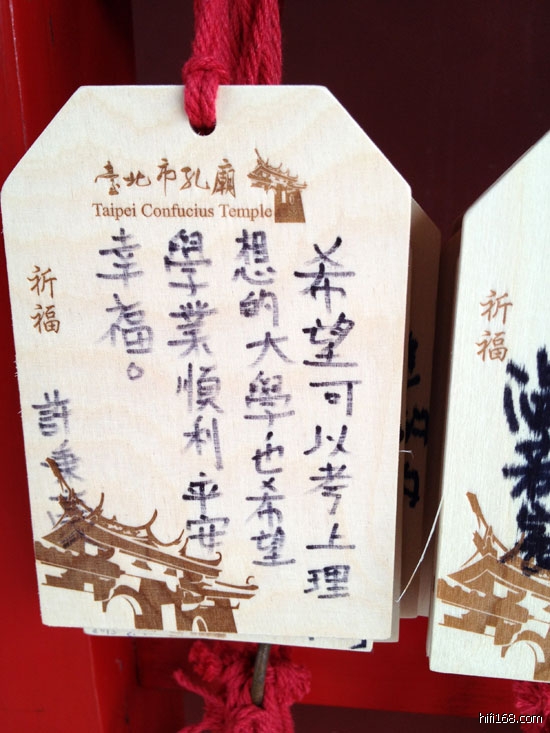 臺北市孔廟
Taipei Confucius Temple
祈福
希望可以考上理
想的大學也希望
學業順利 平安
幸福。
許秉
祈福
hifi168.com